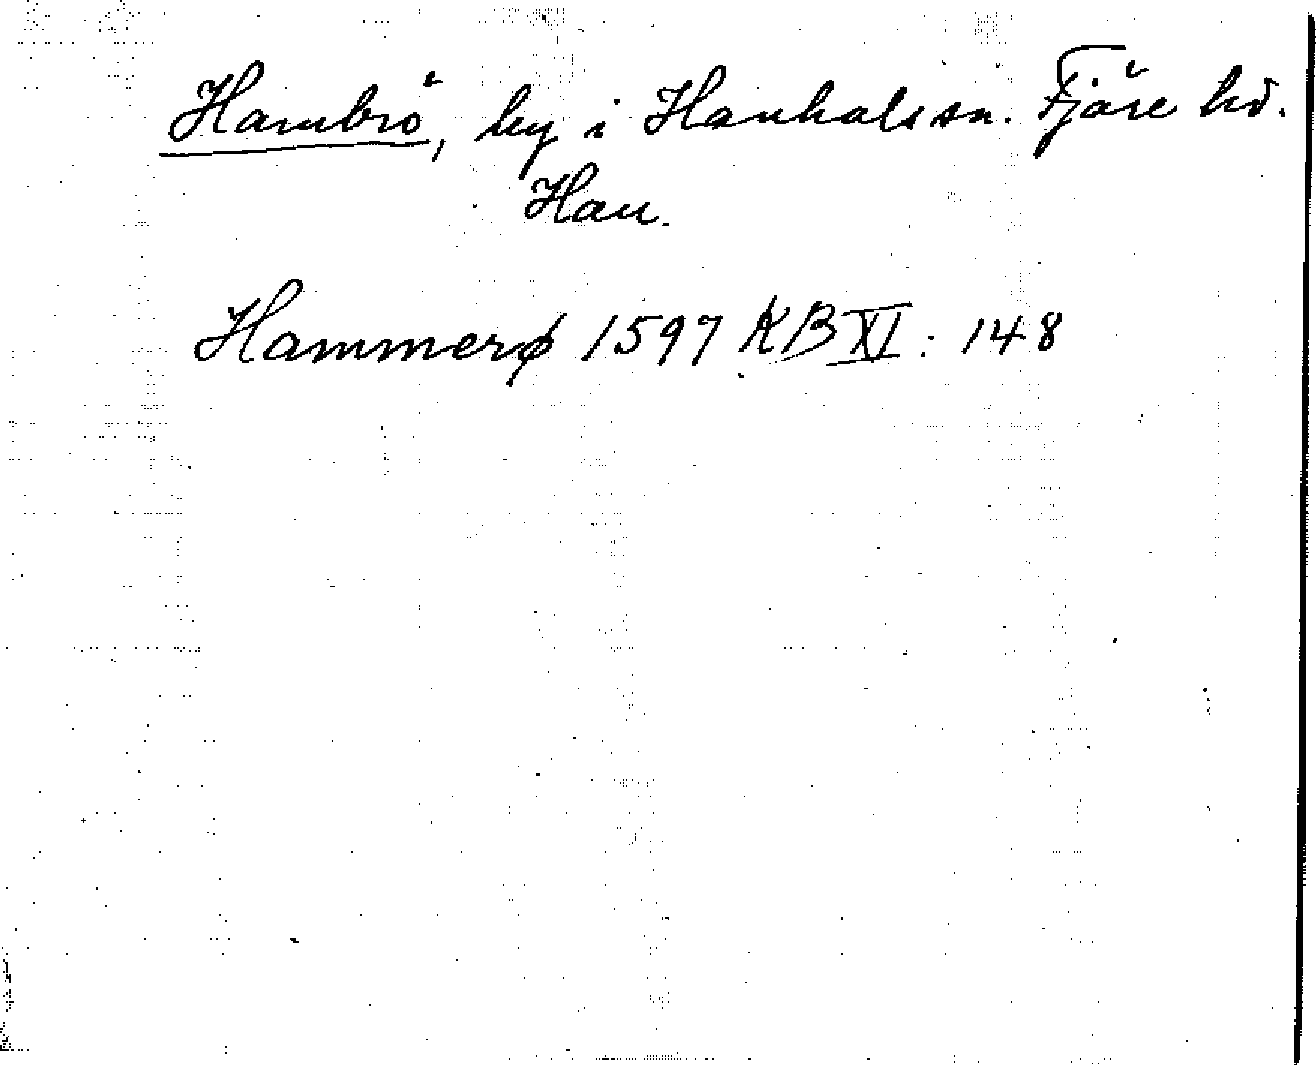 Hambrö, by i Hanhals sn. Fjäre hd.
Hall.
Hammerø 1597 KB XI: 148